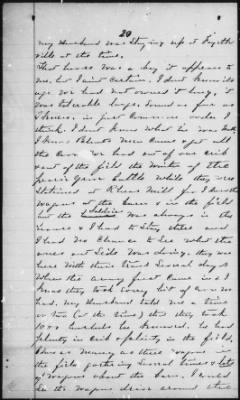 20
my husband was staying up at Fayette
ville at the time.
That horse was a bay it appears to
me, but I aint certain. I dont know its
age we had not owned it long, it
was tolerable large, sound as far as
I know, in just common order I
think. I dont know what he was worth
I know Blunts men came & got all
the corn we had out of our crib
and out of the field the winter of the
Prairie Grove battle while they were
stationed at Rheas Mill for I saw the
wagons at the barn & in the field
but the Soldiers was always in the
house & I had to stay there and
I had no chance to see what the
ones out side was doing, they was
here with their teams several days &
When the army first came in I
know they took every bit of corn we
had. My husband told me a time
or two (at the time) that they took
1000 bushels he reckoned. He had
plenty in crib & plenty in the field,
I saw as many as three wagons in
the field gathering several times & lots
of wagons about the barn. I could
see the wagons drive around the